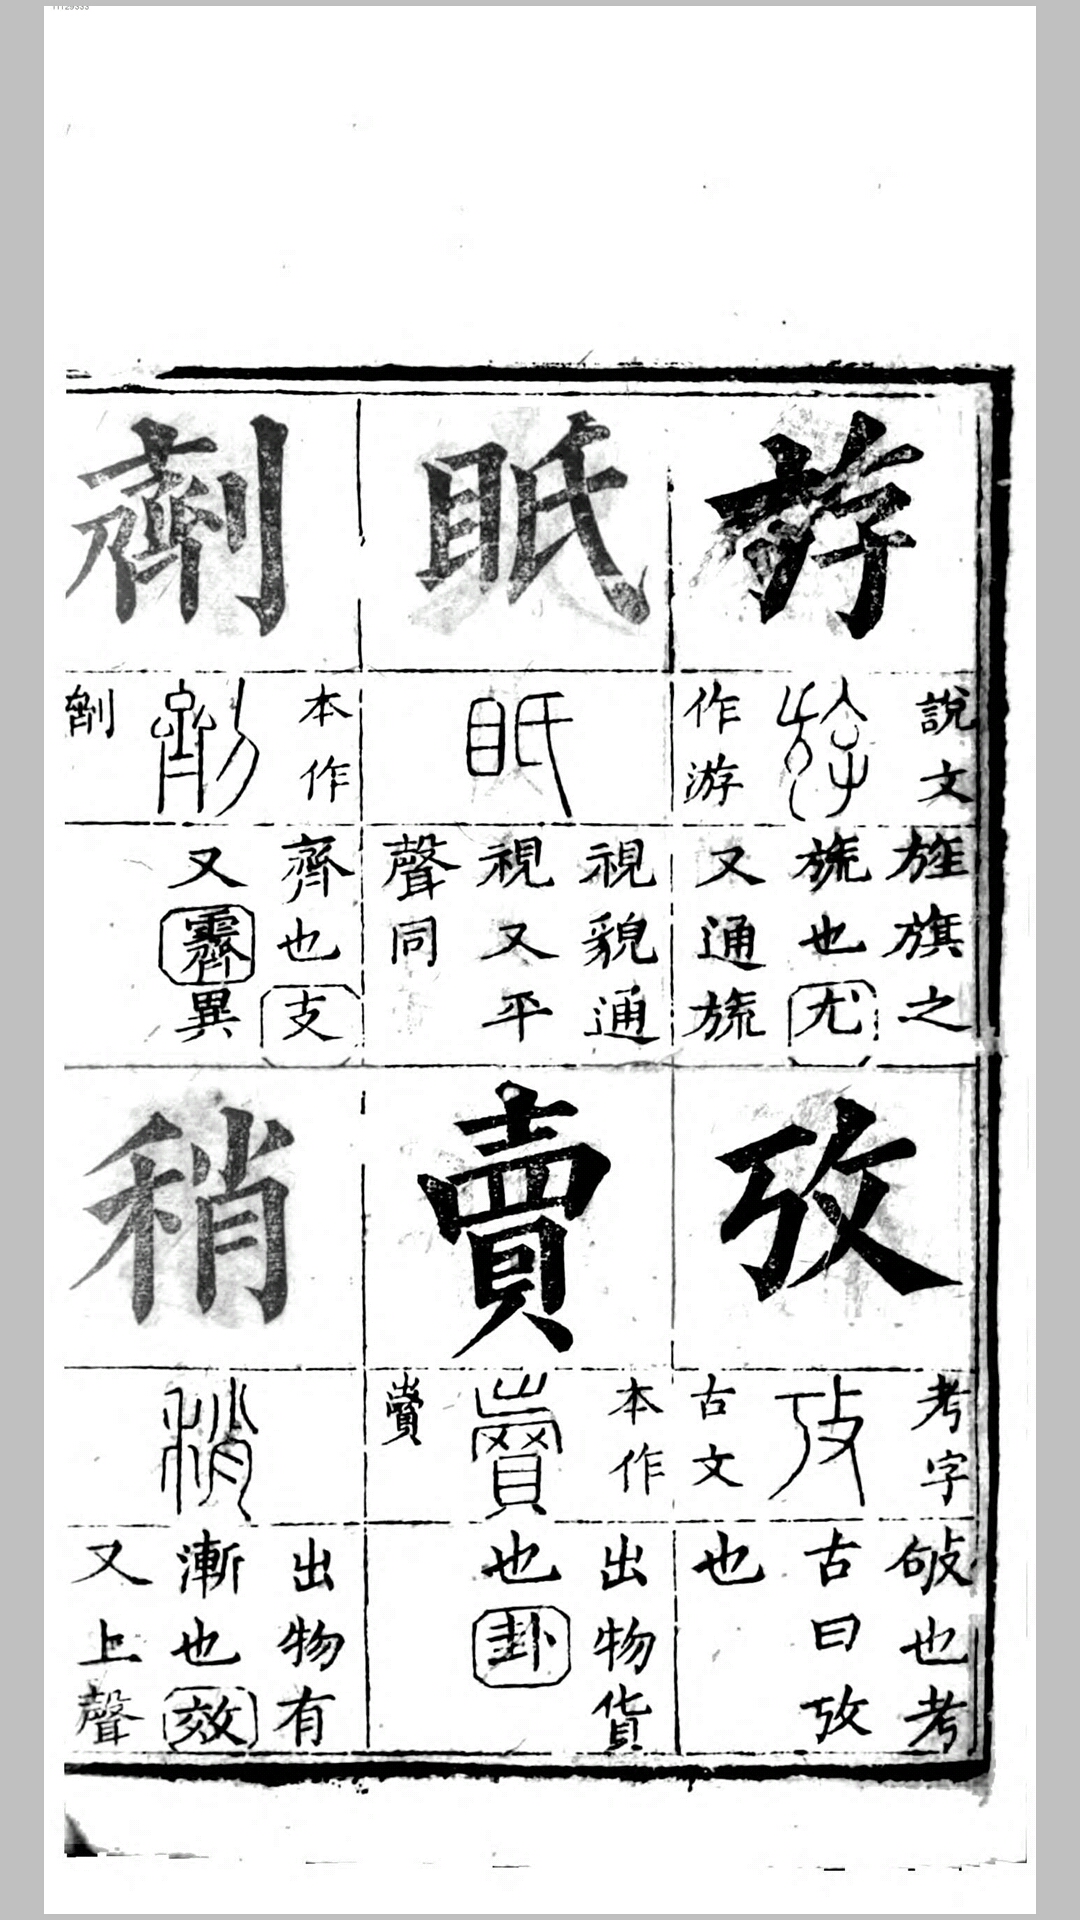 斿
說文
作游
旌旗之
旒也尤
又通旒
攷
考字
古文
敂也考
古曰攷
也
眂
眂
視貌通
視又平
聲同
賣
本作
出物貨
也卦
劑
本作
齊也支
又霽異
稍
稍
出物有
漸也效
又上聲